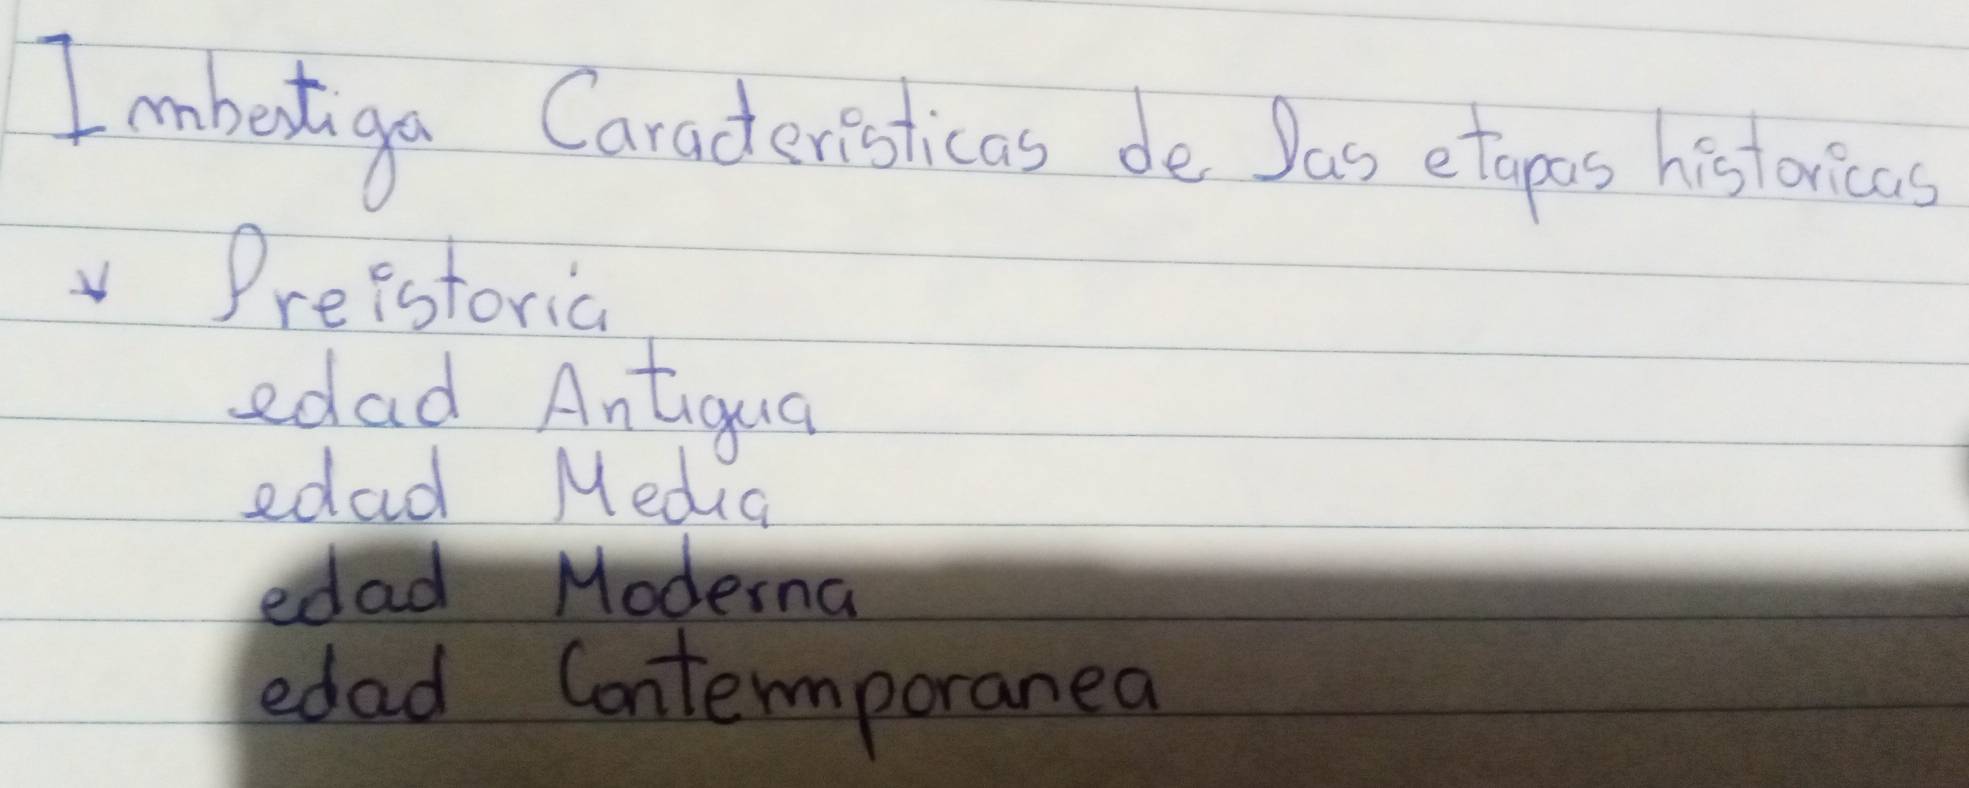 Imbestiga Caracteristicas de las etapas historicas
Preistoria
edad Antigua
edad Media
edad Moderna
edad Contemporanea